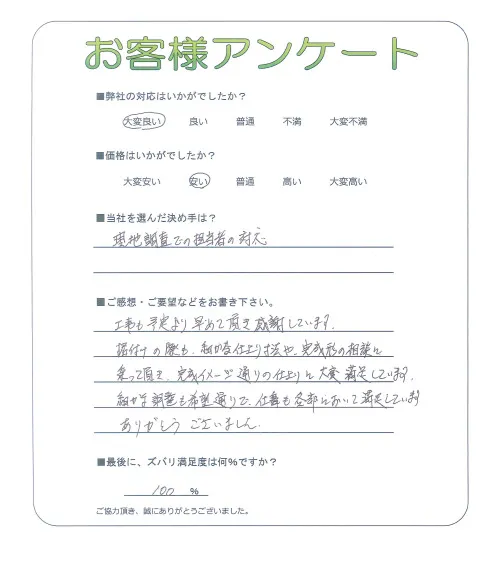 お客様アンケート
■弊社の対応はいかがでしたか？
大変良い 良い 普通 不満 大変不満
■価格はいかがでしたか？
大変安い 安い 普通 高い 大変高い
■当社を選んだ決め手は？
現地調査での担当者の対応
■ご感想・ご要望などをお書き下さい。
工事も予定より早めて頂き感謝しています。
据付けの際も、細か、仕上り寸法や、完成形の相談に
乗って頂き、完成イメージ通りの仕上りに大変満足しています。
細かな調整も希望通りで、仕事も全部において満足しています
ありがとうございました。
■最後に、ズバリ満足度は何%ですか？
100 %
ご協力頂き、誠にありがとうございました。